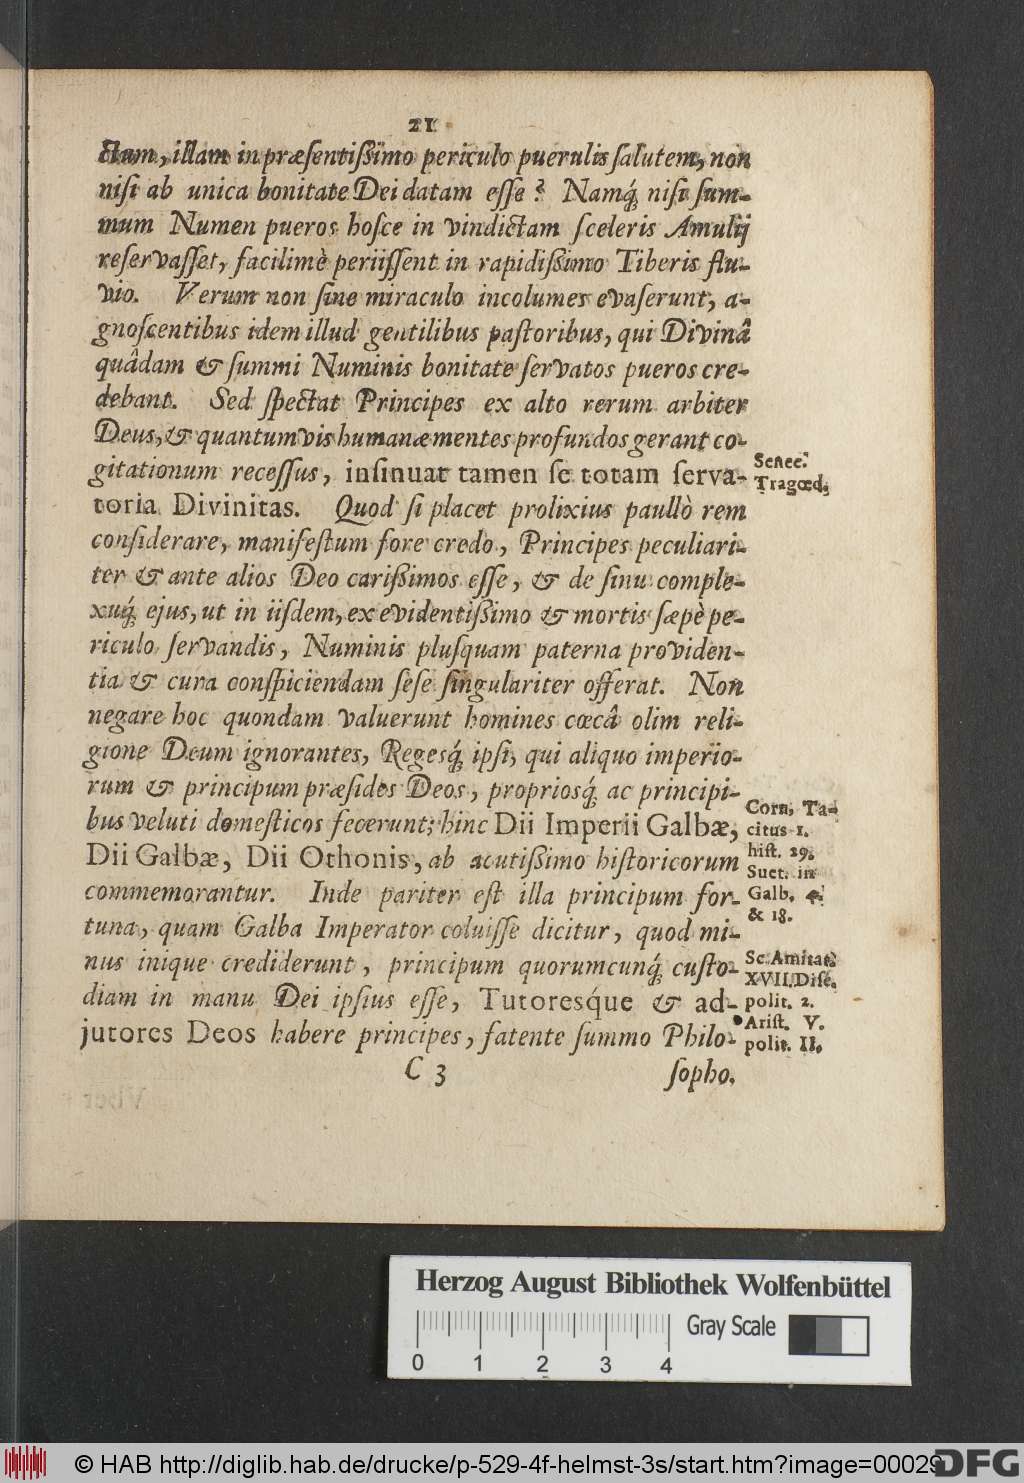 21
ctam, illam in præſentiſsimo periculo puerulis ſalutem, non
niſi ab unica bonitate Dei datam eſſe? Namq́; niſi ſum-
mum Numen pueros hoſce in vindictam ſceleris Amulij
reſervaſſet, facilimè periiſſent in rapidiſsimo Tiberis flu-
vio. Verum non ſine miraculo incolumes evaſerunt, a-
gnoſcentibus idem illud gentilibus paſtoribus, qui Divinâ
quâdam & ſummi Numinis bonitate ſervatos pueros cre-
debant. Sed ſpectat Principes ex alto rerum arbiter
Deus, & quantumvis humanæ mentes profundos gerant co-
gitationum receſſus, inſinuat tamen ſe totam ſerva-
toria Divinitas. Quod ſi placet prolixius paullò rem
conſiderare, manifeſtum fore credo, Principes peculiari-
ter & ante alios Deo cariſsimos eſſe, & de ſinu comple-
xuq́; ejus, ut in iiſdem, ex evidentiſsimo & mortis ſæpè pe-
riculo ſervandis, Numinis pluſquam paterna providen-
tia & cura conſpiciendam ſeſe ſingulariter offerat. Non
negare hoc quondam valuerunt homines cœcâ olim reli-
gione Deum ignorantes, Regesq́; ipſi, qui aliquo imperio-
rum & principum præſides Deos, propriosq́; ac principi-
bus veluti domeſticos fecerunt; hinc Dii Imperii Galbæ,
Dii Galbæ, Dii Othonis, ab acutiſsimo hiſtoricorum
commemorantur. Inde pariter eſt illa principum for-
tuna, quam Galba Imperator coluiſſe dicitur, quod mi-
nus inique crediderunt, principum quorumcunq́; cuſto-
diam in manu Dei ipſius eſſe, Tutoresq́ue & ad-
jutores Deos habere principes, fatente ſummo Philo-
C 3 ſopho.
Senec.
Tragœd.
Corn. Ta-
citus 1.
hiſt. 29.
Suet. in
Galb. 4.
& 18.
Sc. Amitat.
XVII. Diſſ.
polit. 2.
Ariſt. V.
polit. II.
Herzog August Bibliothek Wolfenbüttel
Gray Scale
0 1 2 3 4
© HAB http://diglib.hab.de/drucke/p-529-4f-helmst-3s/start.htm?image=00029
DFG